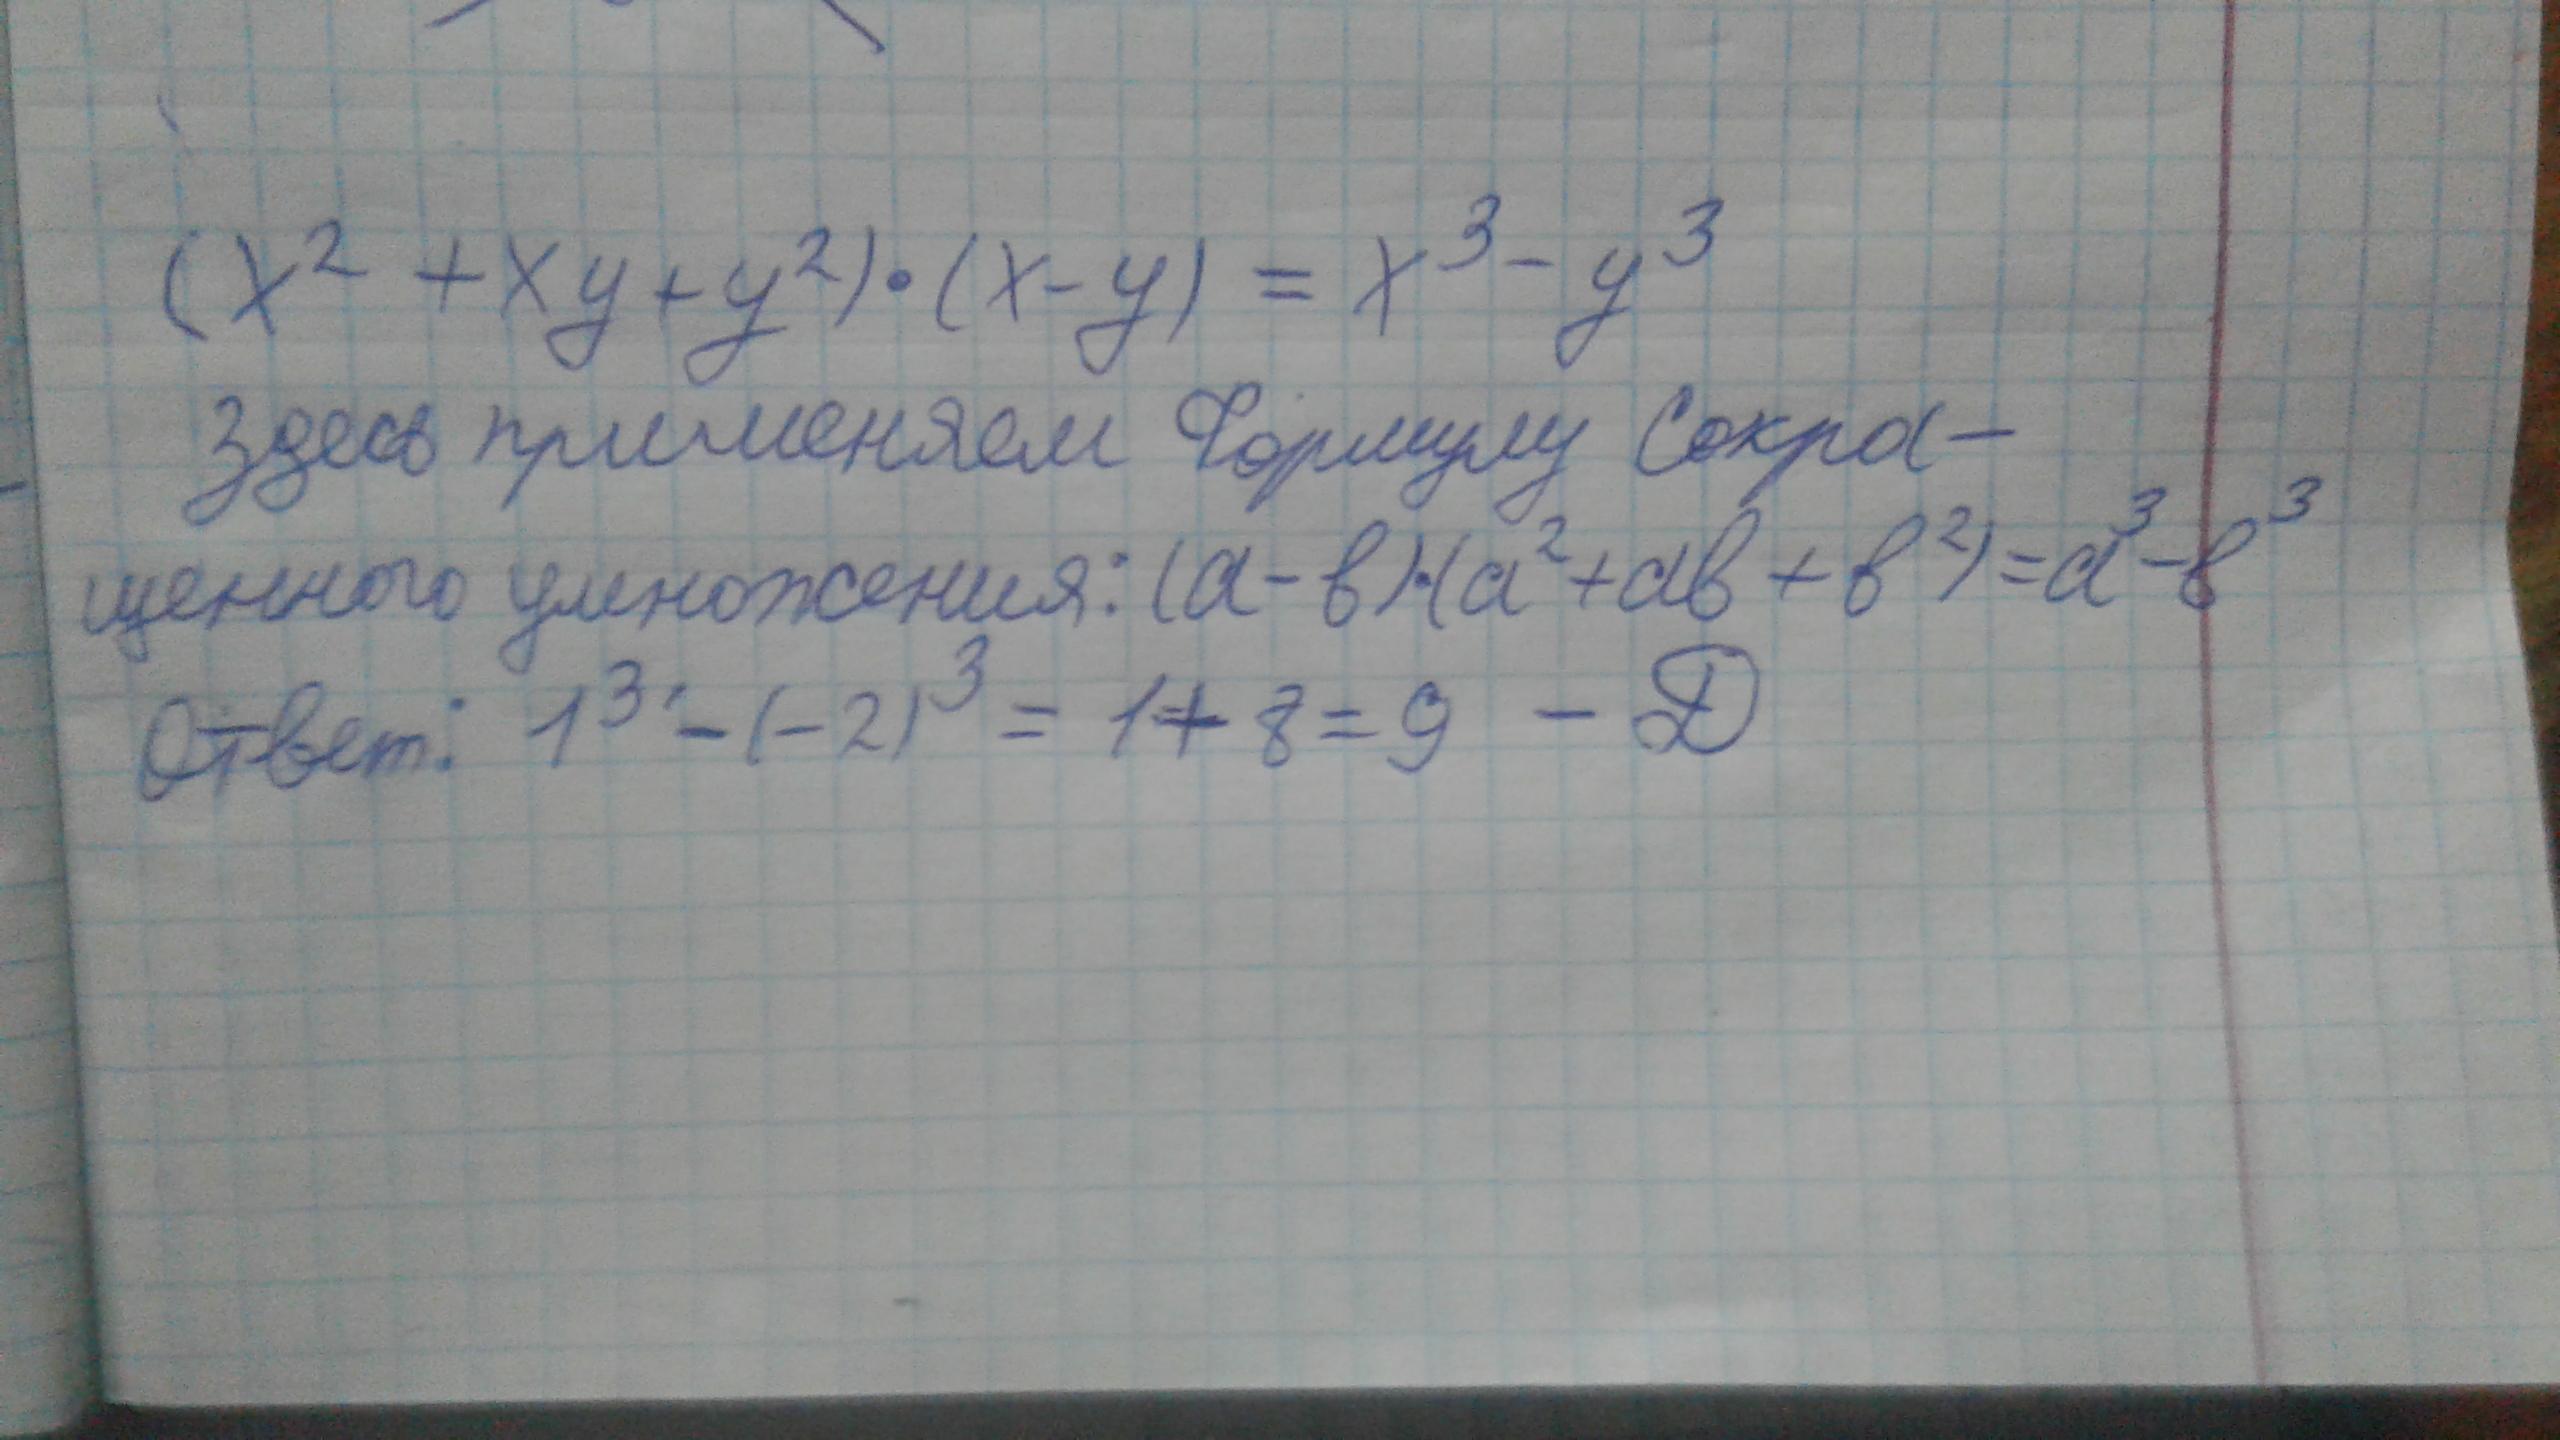 (x² + xy + y²) · (x - y) = x³ - y³
Здесь применяем Формулу Сокра-
щенного умножения: (а - в) · (а² + ав + в²) = а³ - в³
Ответ: 1³ - (-2)³ = 1 + 8 = 9 - Д